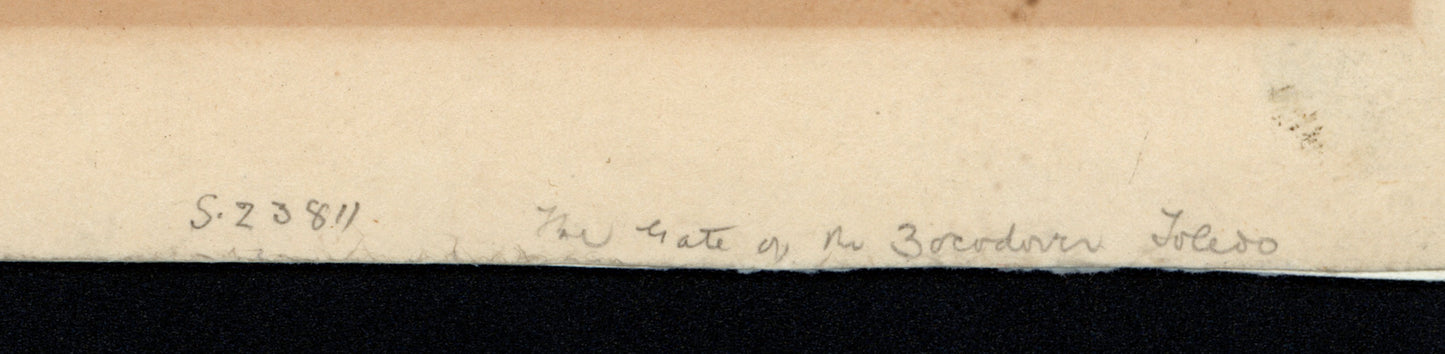 S.23811 The Gate of the Zocodover Toledo